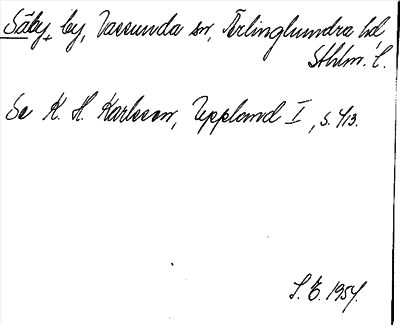 Säby, by, Vassunda sn, Ärlinghundra hd
Sthlm. l.
Se K. H. Karlsson, Uppland I, s. 413.
S. E. 1954.